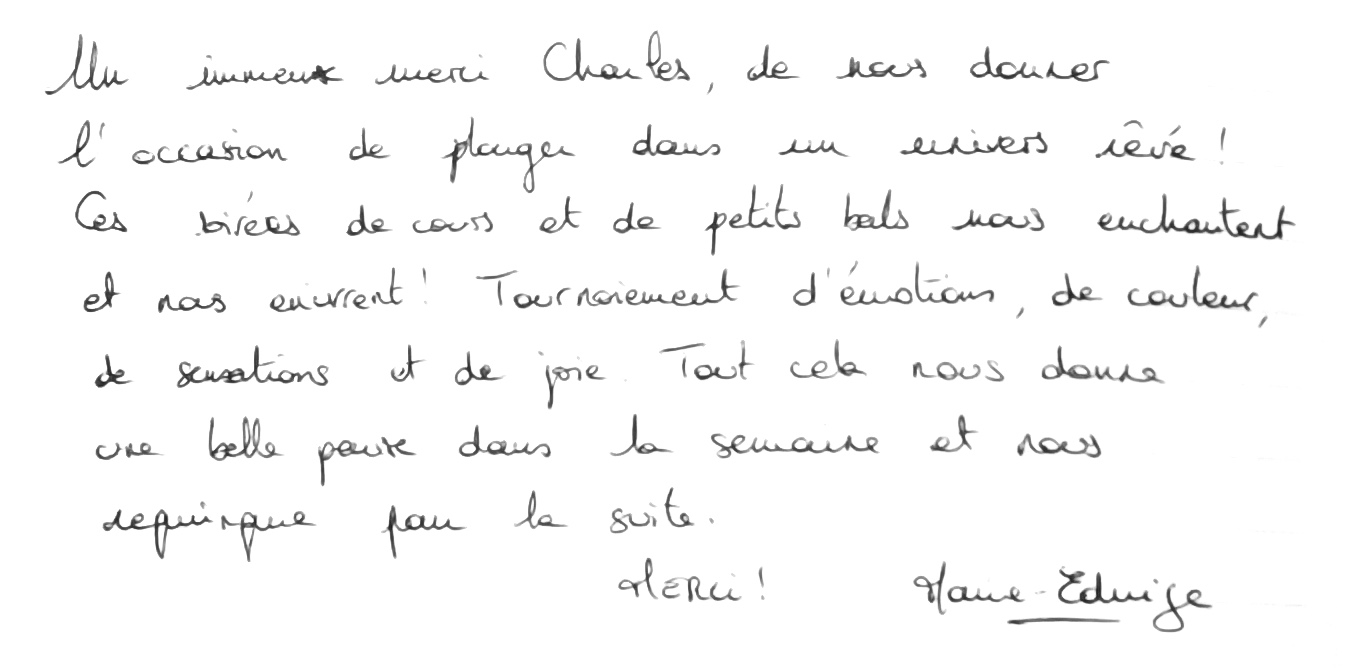 Un immense merci Charles, de nous donner
l'occasion de plonger dans un univers rêvé !
Ces soirées de cours et de petits bals nous enchantent
et nous enivrent ! Tournoiement d'émotions, de couleur,
de sensations et de joie. Tout cela nous donne
une belle pause dans la semaine et nous
requinque pour la suite.
MERCI ! Marie-Edwige